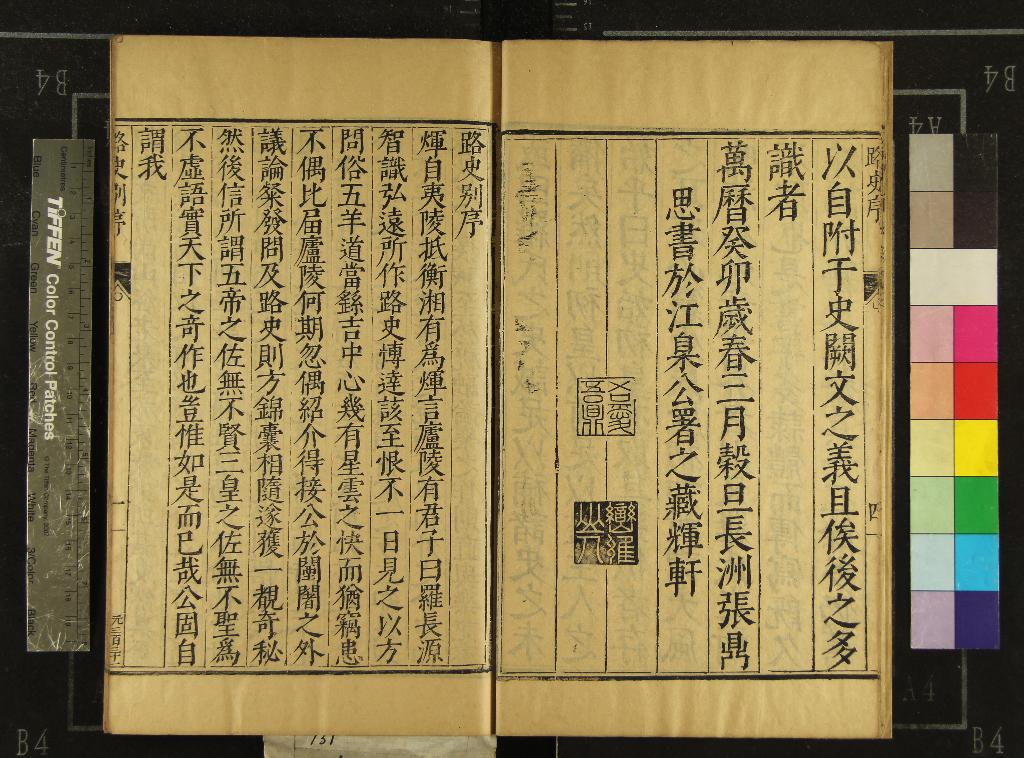 路史序
四
以自附于史闕文之義且俟後之多
識者
萬曆癸卯歲春三月穀旦長洲張鼎
思書於江臬公署之藏輝軒
路史別序
煇自夷陵抵衡湘有為煇言廬陵有君子曰羅長源
智識弘遠所作路史博達該至恨不一日見之以方
問俗五羊道當繇吉中心幾有星雲之快而猶竊患
不偶比届廬陵何期忽偶紹介得接公於闤闠之外
議論粲發問及路史則方錦囊相隨遂獲一覩奇秘
然後信所謂五帝之佐無不賢三皇之佐無不聖為
不虛語實天下之奇作也豈惟如是而已哉公固自
謂我
路史別序
一
TIFFEN Color Control Patches
Centimetres
Inches
Blue
Cyan
Green
Yellow
Red
Magenta
White
3/Color
Black
B4
B4
A4
A4
B4
B4
131